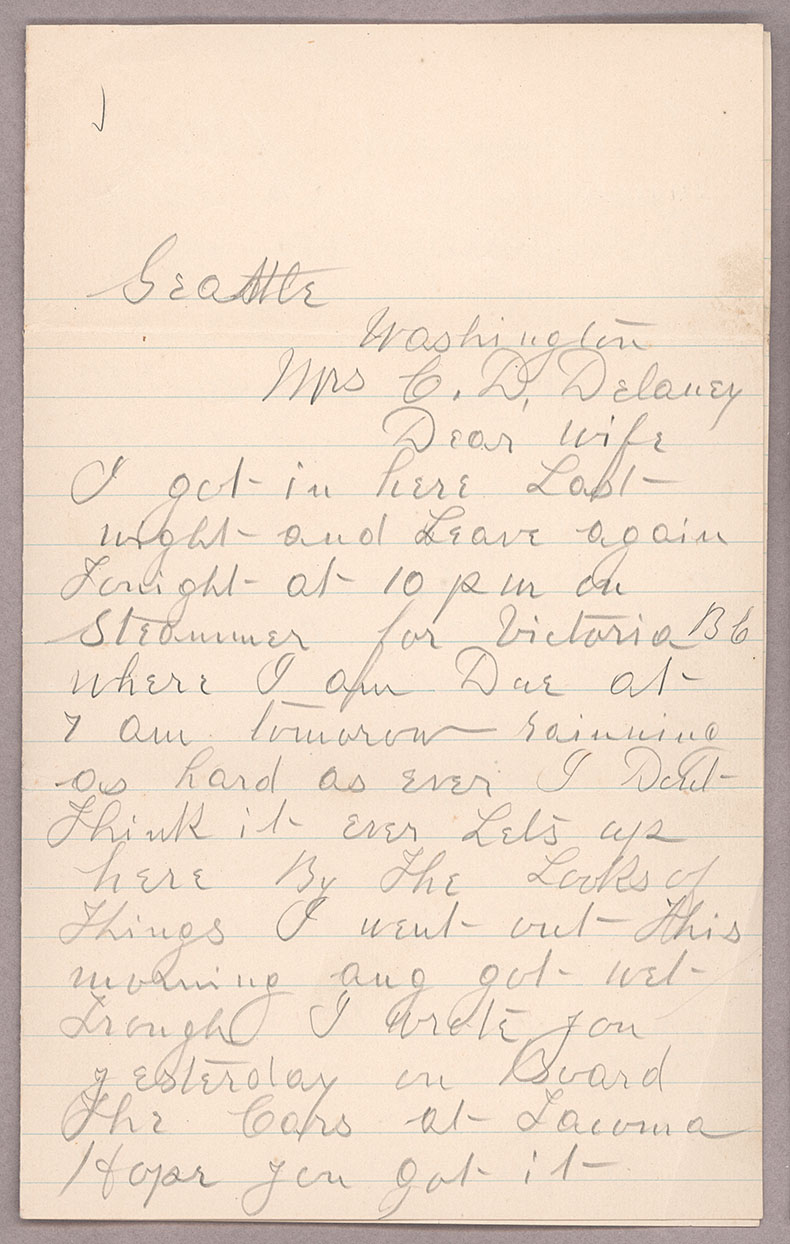 Seattle
Washington
Mrs C. D. Delaney
Dear Wife
I got in here Last
night and Leave again
Tonight at 10 p m on
Steammer for Victoria B C
where I am Due at
7 am tomorow rainning
as hard as ever I Dont
Think it ever Lets up
here By The Looks of
Things I went out This
morning ang got wet
Trough I wrote you
yesterday on Board
The Cars at Tacoma
Hope you got it